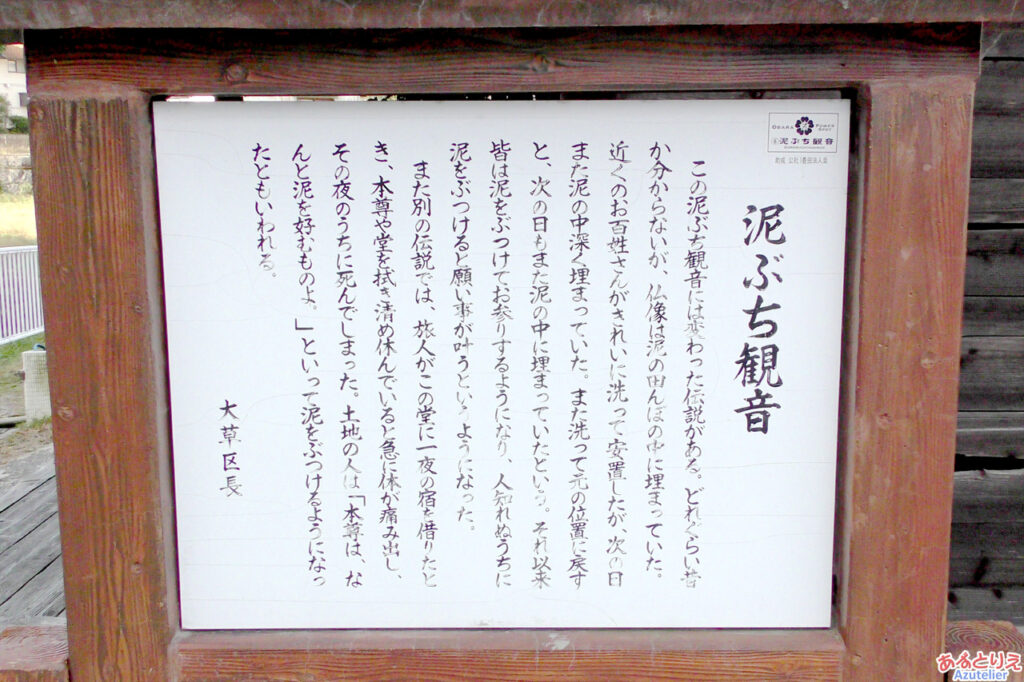 泥ぶち観音
この泥ぶち観音には変わった伝説がある。どれぐらい昔
か分からないが、仏像は泥の田んぼの中に埋まっていた。
近くのお百姓さんがきれいに洗って安置したが、次の日
また泥の中深く埋まっていた。また洗って元の位置に戻す
と、次の日もまた泥の中に埋まっていたという。それ以来
皆は泥をぶつけてお参りするようになり、人知れぬうちに
泥をぶつけると願い事が叶うというようになった。
また別の伝説では、旅人がこの堂に一夜の宿を借りたと
き、本尊や堂を拭き清め休んでいると急に体が痛み出し、
その夜のうちに死んでしまった。土地の人は「本尊は、な
んと泥を好むものよ。」といって泥をぶつけるようになっ
たともいわれる。
大草区長
OBARA POWER SPOT
泥ぶち観音
あるとりえ
Azutelier